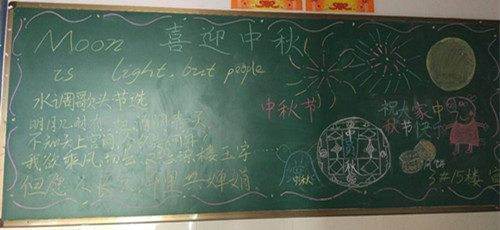 Moon 喜迎中秋
is light, but people
水调歌头节选
明月几时有
不知天上宫
我欲乘风 琼楼玉宇……
但愿人长久 共婵娟
中秋节
祝大家中
秋节快乐
中
秋
中秋
3#15楼